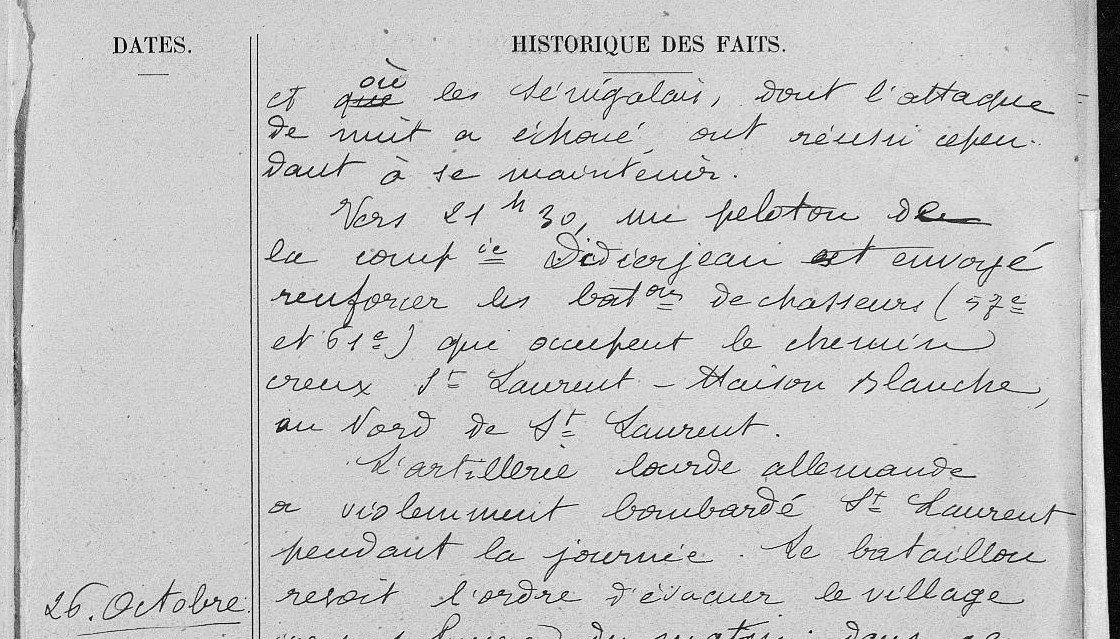 DATES.
HISTORIQUE DES FAITS.
où
et que les Sénégalais, dont l'attaque
de nuit a échoué, ont réussi cepen-
dant à se maintenir.
Vers 21 h 30, un peloton de
la comp ie Didierjean est envoyé
renforcer les bat ons de chasseurs (57e
et 61e) qui occupent le chemin
creux St Laurent – Maison Blanche,
au Nord de St Laurent.
L'artillerie lourde allemande
a violemment bombardé St Laurent
pendant la journée. Le bataillon
26. Octobre. resoit l'ordre d'évacuer le village
du matin; dans